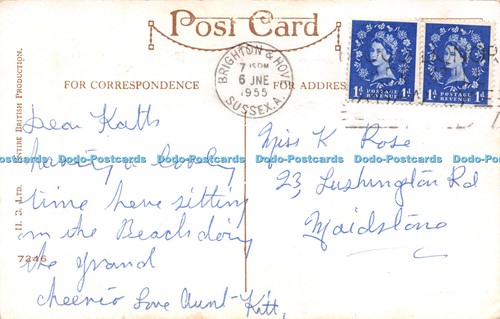 Post Card
BRIGHTON & HOVE
6 JNE
1955
SUSSEX.A.
1d POSTAGE REVENUE 1d
1d POSTAGE REVENUE 1d
FOR CORRESPONDENCE
FOR ADDRESS
Dear Kath
having a lovely
time here sitting
on the Beach doing
the grand
cheerio Love Aunt Kitt,
Miss K Rose
23, Lushington Rd
Maidstone
H. D. LTD. ENTIRE BRITISH PRODUCTION.
7246
Dodo-Postcards Dodo-Postcards Dodo-Postcards Dodo-Postcards Dodo-Postcards Dodo-Postcards